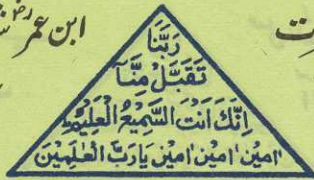 ابن عمر رض
رَبَّنَا
تَقَبَّلْ مِنَّآ
اِنَّكَ اَنْتَ السَّمِيْعُ الْعَلِيْمُ
اٰمِيْن اٰمِيْن اٰمِيْن يَارَبَّ الْعٰلَمِيْنَ